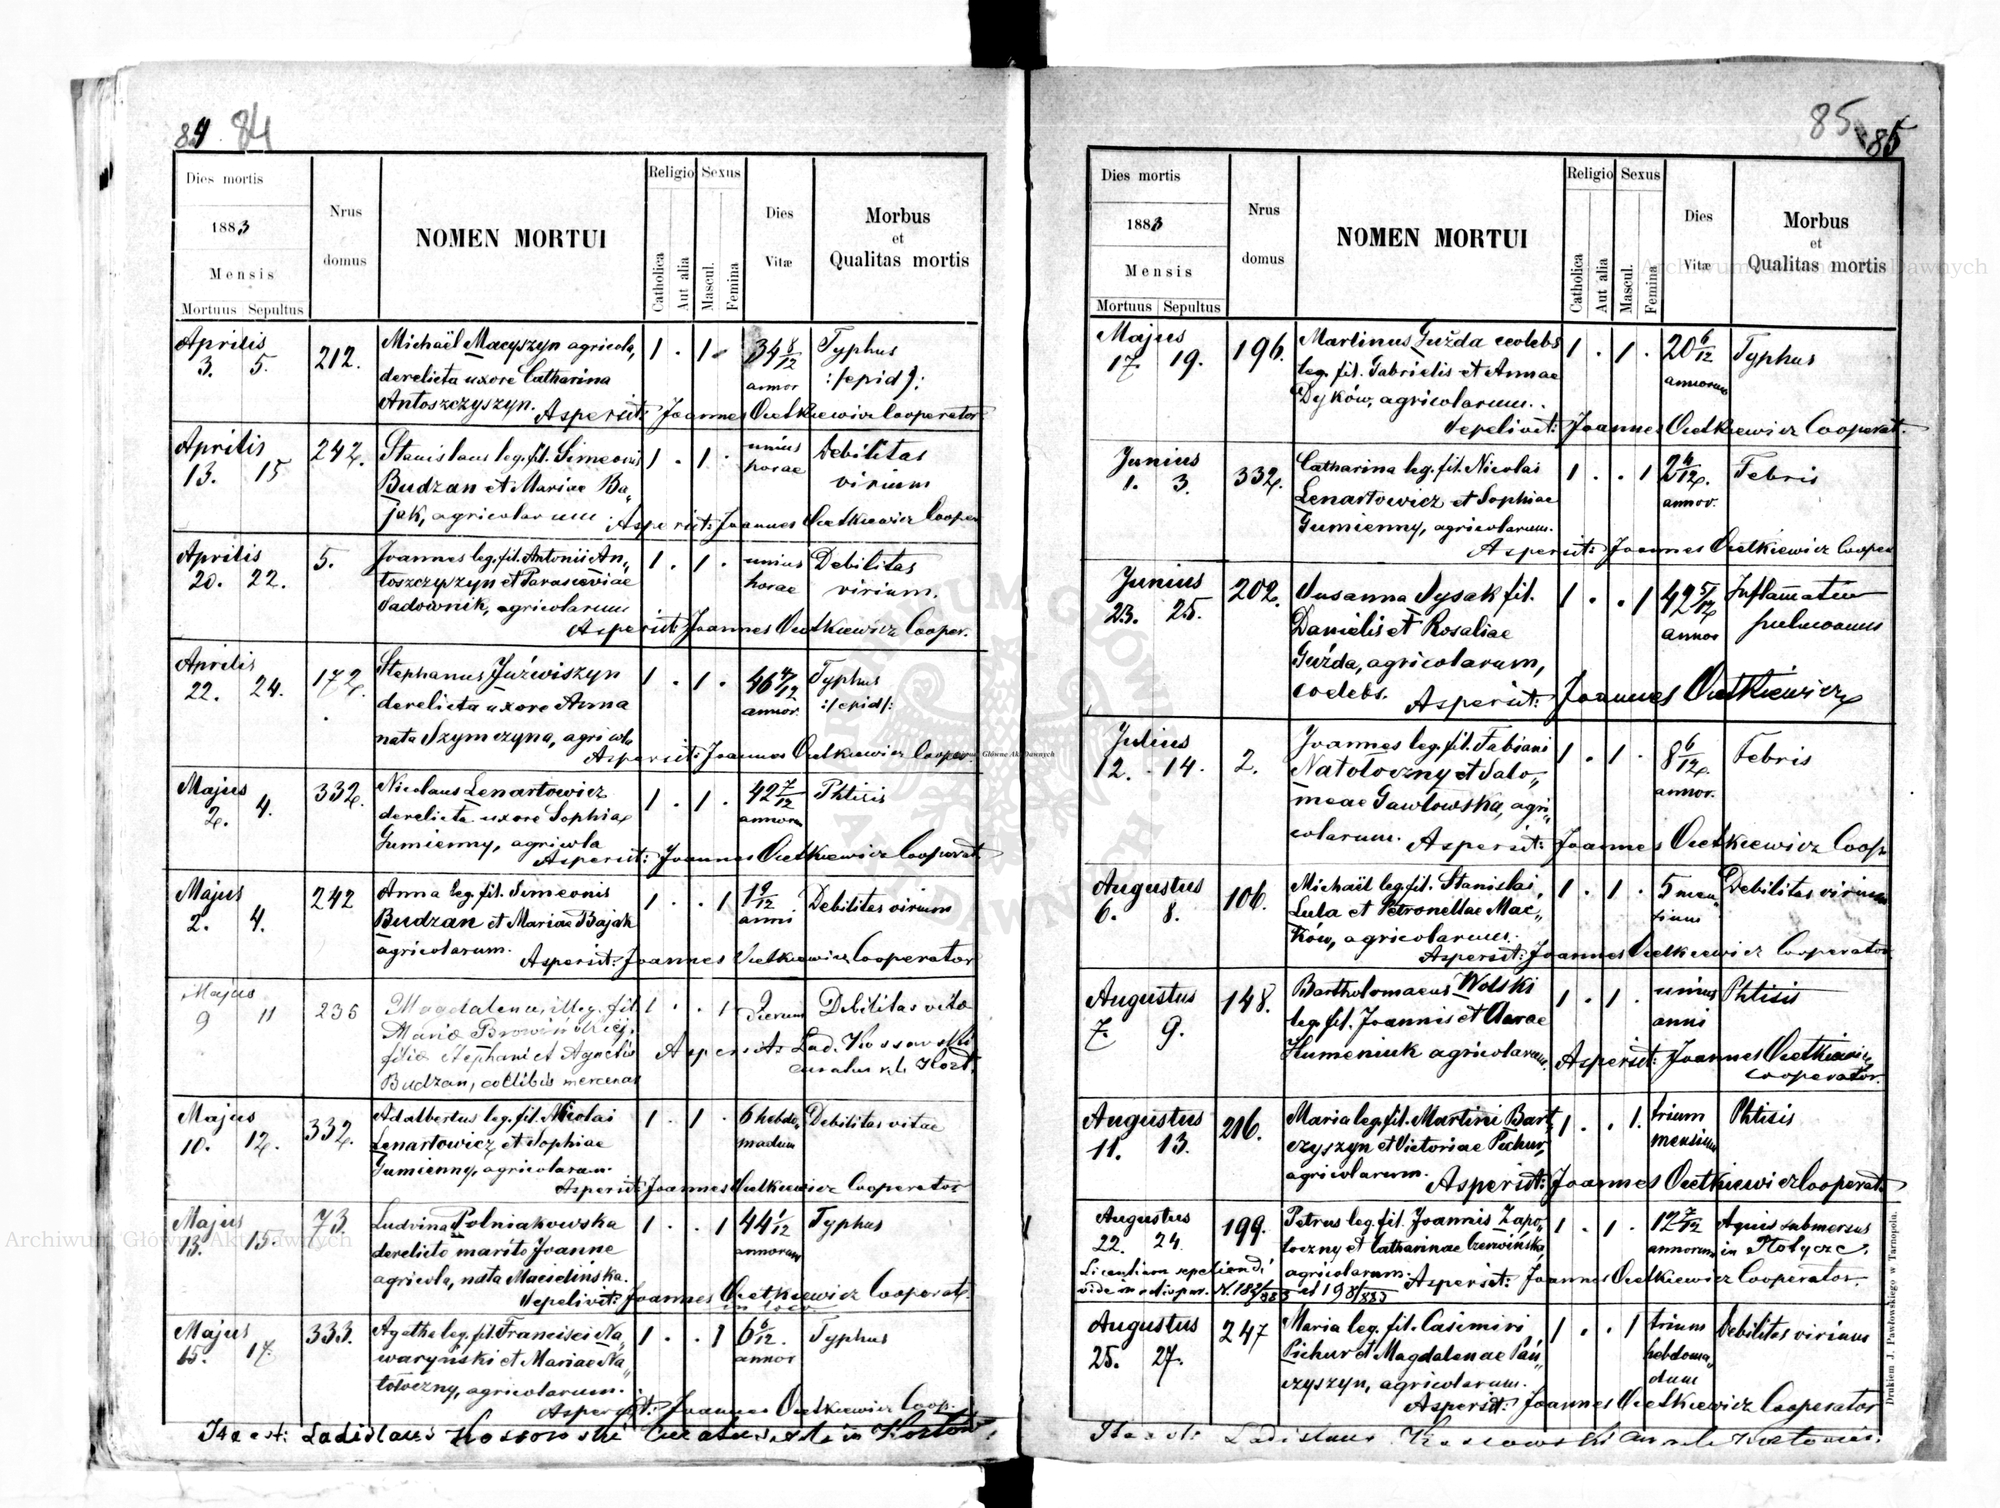 84 84
Dies mortis
1883
Mensis
Mortuus Sepultus
Nrus
domus
NOMEN MORTUI
Religio Sexus
Catholica
Aut alia
Mascul.
Femina
Dies
Vitæ
Morbus
et
Qualitas mortis
Aprilis
3. 5. 212.
Michaël Macyszyn agricola,
derelicta uxore Catharina
Antoszczyszyn.
1 . 1 .
34 8/12
annor
Typhus
:/epid/:
Aspersit: Joannes Cooperator
Aprilis
13. 15 242.
Stanislaus leg. fil. Simeonis
Budzan et Mariae Ba„
jak, agricolarum
1 . 1 .
unius
horae
Debilitas
virium
Aspersit: Joannes Cooper
Aprilis
20. 22. 5.
Joannes leg. fil. Antonii An„
toszczyszyn et Parasceviae
Sadownik, agricolarum
1 . 1 .
unius
horae
Debilitas
virium.
Aspersit: Joannes Cooper.
Aprilis
22. 24. 172.
Stephanus Juźwiszyn
derelicta uxore Anna
nata Szymczyna, agricola
1 . 1 .
46 4/12
annor.
Typhus
:/epid/:
Aspersit: Joannes Cooper.
Majus
2. 4. 332.
Nicolaus Lenartowicz
derelicta uxore Sophia
Gumienny, agricola
1 . 1 .
42 7/12
annorum
Phtisis
Aspersit: Joannes Cooperat.
Majus
2. 4. 242
Anna leg. fil. Simeonis
Budzan et Mariae Bajak
agricolarum.
1 . . 1
1 9/12
anni
Debilitas virium
Aspersit: Joannes Cooperator
Majus
9 11 236
Magdalena, illeg. fil.
Mariæ
filiæ Stephani et Agnetis
Budzan, cœlibis
1 . . 1
2
dierum
Debilitas vitæ
Aspersit: Lad. Kossowski
curatus r. l.
Majus
10. 12. 332.
Adalbertus leg. fil. Nicolai
Lenartowicz et Sophiae
Gumienny, agricolarum.
1 . 1 .
6 hebdo„
madum
Debilitas vitae
Aspersit: Joannes Cooperator
Majus
13. 15. 73.
Ludvina Polniakowska
derelicto marito Joanne
agricola, nata
1 . . 1
44 1/12
annorum
Typhus
Sepelivit: Joannes Cooperat.
in loco
Majus
15. 17. 333.
Agatha leg. fil. Francisci Na„
waryński et Mariae Na„
toloczny, agricolarum.
1 . . 1
6 6/12.
annor
Typhus
Aspersit: Joannes Coop.
Ita est: Ladislaus Kossowski Curatus r. l. in
85 85
Dies mortis
1883
Mensis
Mortuus Sepultus
Nrus
domus
NOMEN MORTUI
Religio Sexus
Catholica
Aut alia
Mascul.
Femina
Dies
Vitæ
Morbus
et
Qualitas mortis
Majus
17. 19. 196.
Martinus Guźda coelebs
leg. fil. Gabrielis et Annae
Dyków, agricolarum.
1 . 1 .
20 6/12
annorum
Typhus
Sepelivit: Joannes Cooperat.
Junius
1. 3. 332.
Catharina leg. fil. Nicolai
Lenartowicz et Sophiae
Gumienny, agricolarum.
1 . . 1
2 4/12.
annor.
Febris
Aspersit: Joannes Cooper
Junius
23. 25. 202.
Susanna Sysak fil.
Danielis et Rosaliae
Guźda, agricolarum,
coelebs.
1 . . 1
42 5/12
annor
Inflamatio
pulmonum
Aspersit: Joannes
Julius
12. 14. 2.
Joannes leg. fil. Fabiani
Natoloczny et Salo„
meae Gawłowska, agri„
colarum.
1 . 1 .
8 6/12.
annor.
Febris
Aspersit: Joannes Coop.
Augustus
6. 8. 106.
Michaël leg. fil. Stanislai
Lula et Petronellae Mać„
ków, agricolarum.
1 . 1 .
5 men„
sium
Debilitas virium
Aspersit: Joannes Cooperator
Augustus
7. 9. 148.
Bartholomaeus Wolski
leg. fil. Joannis et Clarae
Humeniuk agricolarum
1 . 1 .
unius
anni
Phtisis
Aspersit: Joannes
Cooperator.
Augustus
11. 13. 216.
Maria leg. fil. Martini Bart„
czyszyn et Victoriae Pichur,
agricolarum.
1 . . 1.
trium
mensium
Phtisis
Aspersit: Joannes Cooperat.
Augustus
22. 24. 199.
Petrus leg. fil. Joannis Zapo„
toczny et Catharinae Czerwińska,
agricolarum.
1 . 1 .
12 7/12
annorum
Aquis submersus
in
Aspersit: Joannes Cooperator.
Licentiam sepeliendi
vide in
Augustus
25. 27. 247
Maria leg. fil. Casimiri
Pichur et Magdalenae Pań„
czyszyn, agricolarum.
1 . . 1
trium
hebdoma„
dum
Debilitas virium
Aspersit: Joannes Cooperator
Ita est: Ladislaus Kossowski
Drukiem J. Pawłowskiego w Tarnopolu.
Archiwum Główne Akt Dawnych